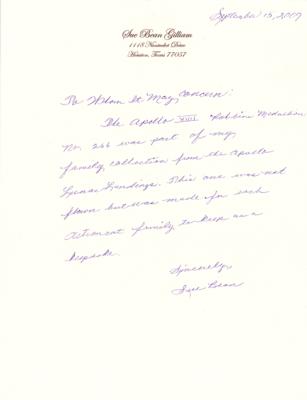 September 15, 2007
Sue Bean Gilliam
1118 Nantucket Drive
Houston, Texas 77057
To Whom It May Concern:
The Apollo XVII Robbins Medallion
No. 266 was part of my
family collection from the Apollo
Lunar Landings. This one was not
flown but was made for each
astronaut family to keep as a
keepsake.
Sincerely,
Sue Bean